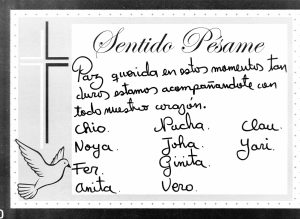 Sentido Pésame
Paz querida en estos momentos tan
duros estamos acompañandote con
todo nuestro corazón.
Chio. Pucha. Clau.
Noya. Joha. Yari.
Fer. Ginita.
Anita. Vero.